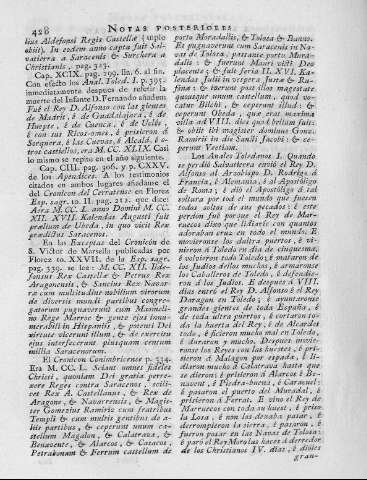 428 NOTAS POSTERIORES.
lius Aldefonsi Regis Castellæ (suple
obiit). In eodem anno capta fuit Sal-
vatierra à Saracenis & Surchera à
Christianis, pag. 323.
Cap. XCIX. pag. 299. lin. 6. al fin.
Con efecto los Anal. Toled. I. p. 395.
inmediatamente despues de referir la
muerte del Infante D. Fernando añaden:
Fue el Rey D. Alfonso con las gientes
de Madrit, è de Guadalhajara, è de
Huepte, è de Cuenca, è de Uclés, è
con sus Ricos-omes, è prisieron à
Serquera, è las Cuevas, è Alcalá, è o-
tros castellos, era M. CC. XLIX. Casi
lo mismo se repite en el año siguiente.
Cap. CIII. Pag. 306. y p. CXXV.
de los Apendices. A los testimonios
citados en ambos lugares añadase el
del Cronicon del Cerratense en Florez
Esp. sagr. to. II. pag. 212. que dice:
Aera M.CC. L. anno Domini M. CC.
XII. XVII. Kalendas Augusti fuit
prælium de Ubeda, in quo vicit Rex
prædictus Saracenos.
En las Excerptas del Cronicon de
S. Victor de Marsella publicadas por
Florez to. XXVII. de la Esp. sagr.
pag. 339. se lee: M. CC. XII. Ilde-
fonsus Rex Castellæ & Petrus Rex
Aragonensis, & Sanctius Rex Navar-
ræ cum multitudine nobilium virorum
de diversis mundi partibus congre-
gatorum pugnaverunt cum Mammeli-
no Rege Marroc & gente ejus innu-
merabili in Hispaniis, & potenti Dei
virtute vicerunt illum, & de exercitu
ejus interfecerunt plusquam centum
millia Saracenorum.
El Cronicon Conimbricense p. 334.
Era M. CC. L. Sciant omnes fideles
Christi, quoslam Dei gratia perve-
nere Reges contra Saracenos, scili-
cet Rex A. Castellanus, & Rex de
Aragone, & Navarrensis, & Magis-
ter Gomezius Ramiriz cum fratribus
Templi & cum multis gentibus de a-
liis partibus, & ceperunt unum ca-
stellum Magalon, & Calatrava, &
Benavente, & Alarcos, & Caracos,
Petrabonum & Ferrum castellum de
portu Moradallis, & Tolosa & Bannos.
Et pugnaverunt cum Saracenis in Na-
vas de Tolosa, passante portu Mora-
dalis: & fuerunt Mauri victi Deo
placente; & fuit feria II. XVI. Ka-
lendas Julii in tempus Justæ & Ru-
finæ: & fuerunt post illos magistare
quousque unum castellum, quod vo-
catur Bilchi, & ceperunt illud: &
ceperunt Obeda, quæ erat maxima
villa ad VIII. dies quod fuit bellum:
& obiit ibi magister domnus Gomz.
Ramiriz in die Sancti Jacobi: & ce-
perunt Vaetiam.
Los Anales Toledanos I. Quando
se perdió Salvatierra envió el Rey D.
Alfonso al Arzobispo D. Rodrigo à
Francia, è Alemania, è al Apostoligo de
Roma; è dió el Apostoligo à tal
soltura por toto el mundo, que fuesen
todos soltos de sus pecados: è este
perdon fué porque el Rey de Mar-
ruecos dixo que lidiarie con quantos
adoraban cruz en todo el mundo. E
movieronse los de ultra puertos, è vi-
nieron à Toledo en dia de cinquesma,
è volvieron todo Toledo; è mataron de
los Judíos dellos muchos, è armaronse
los Caballeros de Toledo, è defendie-
ron à los Judíos. E despues à VIII.
dias entró el Rey D. Alfonso è el Rey
Daragon en Toledo; è ayuntaronse
grandes gientes de toda España, è
de toda ultra puertos, è cortaron to-
da la huerta del Rey, è de Alcardet
todo, è ficieron mucho mal en Toledo,
è duraron y mucho. Despues movie-
ronse los Reyes con las huestes, è pri-
sieron à Malagon por espada, è li-
diaron mucho à Calatrava hasta que
se dieron: è prisieron à Alarcos è Be-
navent, è Piedra-buena, è Caramel:
è pasaron el puerto del Muradal, è
prisieron à Ferrat. E vino el Rey de
Marruecos con toda su huest, è priso
la Losa, è non les denaba pasar, è
derrompieron la sierra, è pasaron, è
fueron posar en las Navas de Tolosa:
è paró el Rey Moro las haces à derredor
de los Christianos IV. dias, è dioles
gran-